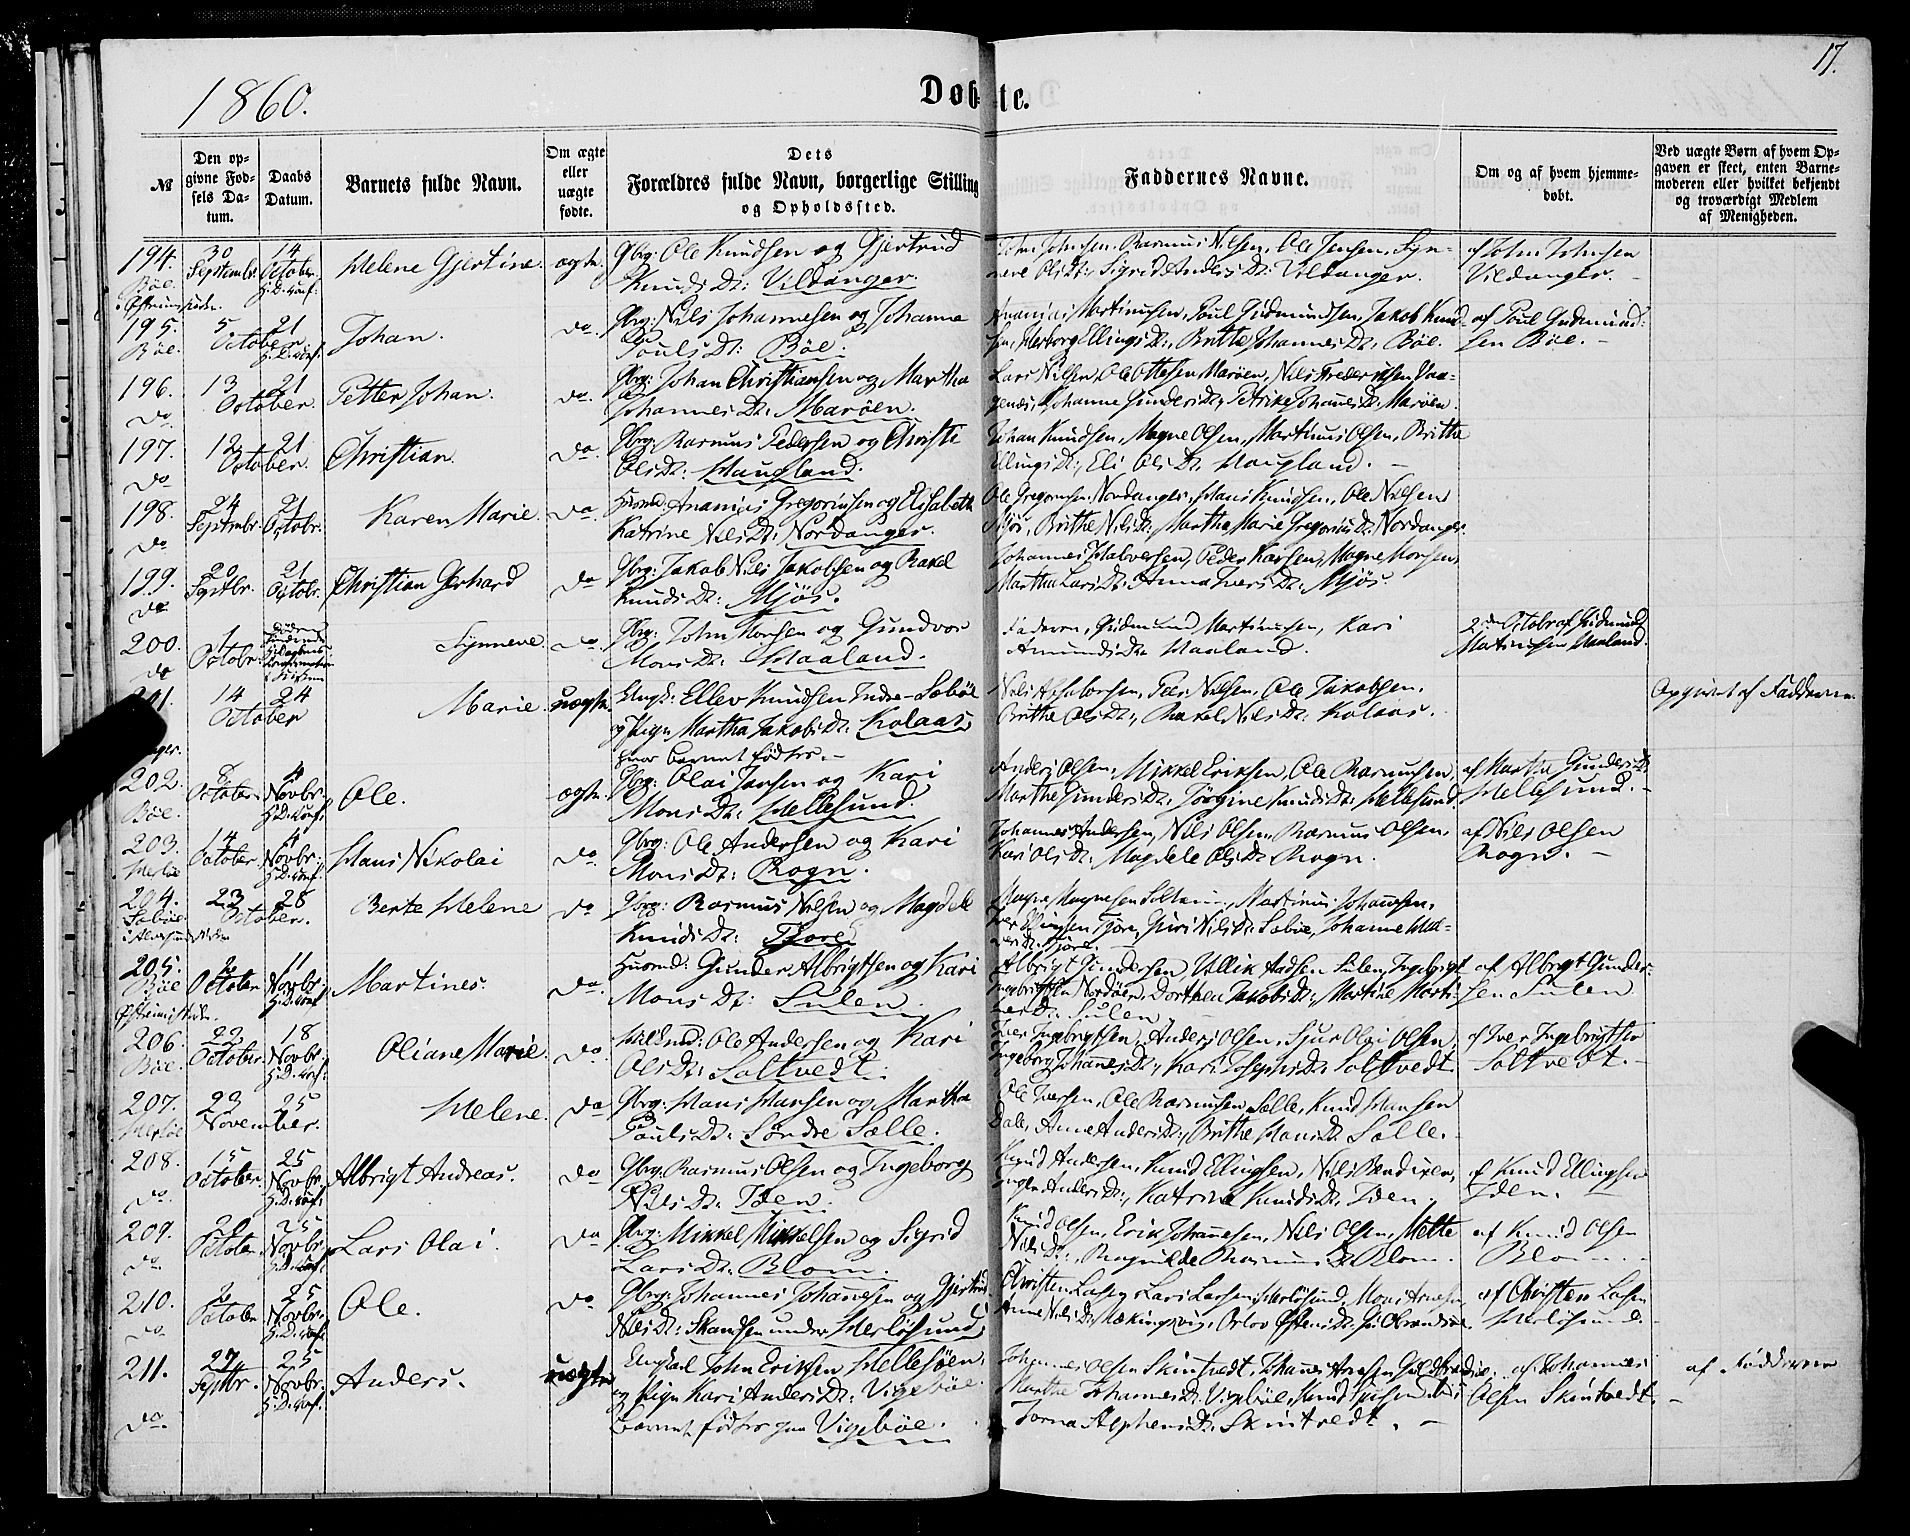 17.
1860.
Døbte.
№
Den opgivne Fødsels Datum.
Daabs Datum.
Barnets fulde Navn.
Om ægte eller uægte fødte.
Dets Forældres fulde Navn, borgerlige Stilling og Opholdssted.
Faddernes Navne.
Om og af hvem hjemmedøbt.
Ved uægte Børn af hvem Opgaven er skeet, enten Barnemoderen eller hvilket bekjendt og troværdigt Medlem af Menigheden.
194. Bøe.
30 Septembr.
14 October
Helene Gjertine.
ægte.
Gbrg: Ole Knudsen og Gjertrud
Knuds Dt: Vildanger.
John Johnsen, Rasmus Nilsen, Ole Jensen, Synneve Ols Dt:, Sigrid Anders Dt: Vildanger.
af John Johnsen
Vildanger.
195. Bøe.
5 October
21
Johan.
do.
Gbrg: Nils Johannesen og Johanna
Pouls Dt: Bøe.
Ananias Martinusen, Poul Gudmundsen, Jakob Knudsen, Herborg Ellings Dt:, Brithe Johannes Dt: Bøe.
af Poul Gudmundsen Bøe.
196. do
13 October
21
Petter Johan.
do.
Gbrg: Johan Christiansen og Martha
Johannes Dt: Marøen.
Lars Nilsen, Ole Ottesen Marøen, Nils Fredriksen Vaagenæs, Johanne Gunders Dt:, Petrike Johannes Dt: Marøen.
197. do
12 October
21
Christian.
do.
Gbrg: Rasmus Pedersen og Christi
Ols Dt: Haugland.
Johan Knudsen, Magne Olsen, Martinus Olsen, Brithe
Ellings Dt:, Eli Ols Dt: Haugland.
198. do
24 Septmbr.
21 Octobr.
Karen Marie.
do.
Husmd: Ananias Gregoriusen og Elisabeth
Katrine Nils Dt: Nordanger.
Ole Gregoriusen Nordanger, Hans Knudsen, Ole Nilsen
Mjøs, Brithe Nils Dt:, Martha Marie Gregorius Dt: Nordanger.
199. do
20 Septbr.
21 Octobr.
Christian Gerhard
do
Gbrg: Jakob Nils Jakobsen og Rakel
Knuds Dt: Mjøs.
Johannes Halvorsen, Peder Larsen, Magne Monsen,
Martha Lars Dt:, Anna Ivers Dt: Mjøs
200. do
1 Octobr.
Synneve
do.
Gbrg: John Monsen og Gundvor
Mons Dt: Haaland.
Faderen, Gudmund Martinusen, Kari
Amunds Dt: Haaland.
2den Octob af Gudmund
Martinusen Haaland.
14 October
24
Marie.
uægte.
Ungk: Ellev Knudsen Indre-Sæbøe
og Pige Martha Jakobs Dt: Kolaas
hvor Barnet fødtes.
Nils Absalonsen, Peer Nilsen, Ole Jakobsen,
Brithe Ols Dt:, Rakel Nils Dt: Kolaas.
Opgivet af Fadderne.
202. Bøe.
8 October
4 Novbr.
Ole.
ægte.
Gbrg: Olai Jansen og Kari
Mons Dt: Hellesund.
Anders Olsen, Mikkel Eriksen, Ole Rasmusen,
Marthe Gunders Dt:, Jørgine Knuds Dt: Hellesund.
af Marthe Gunders Dt
Hellesund.
203. Herlø
14 October
4 Novbr.
Hans Nikolai
do.
Gbrg: Ole Andersen og Kari
Mons Dt: Rogn.
Johannes Andersen, Nils Olsen, Rasmus Olsen,
Kari Ols Dt:, Magdele Ols Dt: Rogn.
af Nils Olsen
Rogn.
204. Sæbøe
23 October.
28
Berte Helene
do
Gbrg: Rasmus Nilsen og Magdele
Knuds Dt: Tjore
205. Bøe
2 October
11 Novbr.
Martines.
do.
Husmd: Gunder Albrigtsen og Kari
Mons Dt: Sulen.
Albrigt Gundersen
af Albrigt Gundersen Sulen
206. Bøe.
22 October.
18 Novbr.
Oliane Marie.
do.
Ole Andersen og Kari
Ols Dt: Soltvedt.
Iver Ingebrigtsen, Anders Olsen, Sjur Olai Olsen,
Ingeborg Johannes Dt:, Kari Josephs Dt: Soltvedt
af Iver Ingebrigtsen
Soltvedt.
207. Herlø
23 November.
25
Helene.
do
Gbrg: Hans Hansen og Martha
Pouls Dt: Søndre Sælle.
Ole Iversen, Ole Rasmusen Sælle, Knud Hansen
Dale, Anne Anders Dt:, Brithe Hans Dt: Sælle.
208. do.
15 October
25 Novbr.
Albrigt Andreas.
do
Gbrg: Rasmus Olsen og Ingeborg
Nils Dt: Iden.
Knud Andersen, Knud Ellingsen, Nils Bendixen,
Anders Dt:, Katrine Knuds Dt: Iden.
af Knud Ellingsen
Iden.
209. do.
October
25 Novbr.
Lars Olai.
do
Gbrg: Mikkel Mikkelsen og Sigrid
Lars Dt: Blom.
Knud Olsen, Erik Johannesen, Nils Olsen, Mette
Nils Dt:, Ragnilde Rasmus Dt Blom.
af Knud Olsen
Blom.
210. do.
2 October
25 Novbr.
Ole.
do
Gbrg: Johannes Johannesen og Gjertrud
Nils Dt: Skandsen under Herløsund
Christen Larsen, Lars Larsen Herløsund, Mons Arnesen,
Anne Nils Dt:
af Christen Larsen
Herløsund.
211. do.
27 Septbr.
25 Novbr.
Anders.
uægte
Ungkarl John Eriksen Hellesøen,
og Pige Kari Anders Dt: Vigebøe.
Barnet fødtes paa Vigebøe.
Johannes Olsen Skintvedt, Johannes Arnesen
Marthe Johannes Dt: Vigebøe
Skintvedt.
af Johannes
Olsen Skintvedt.
af Fadderne